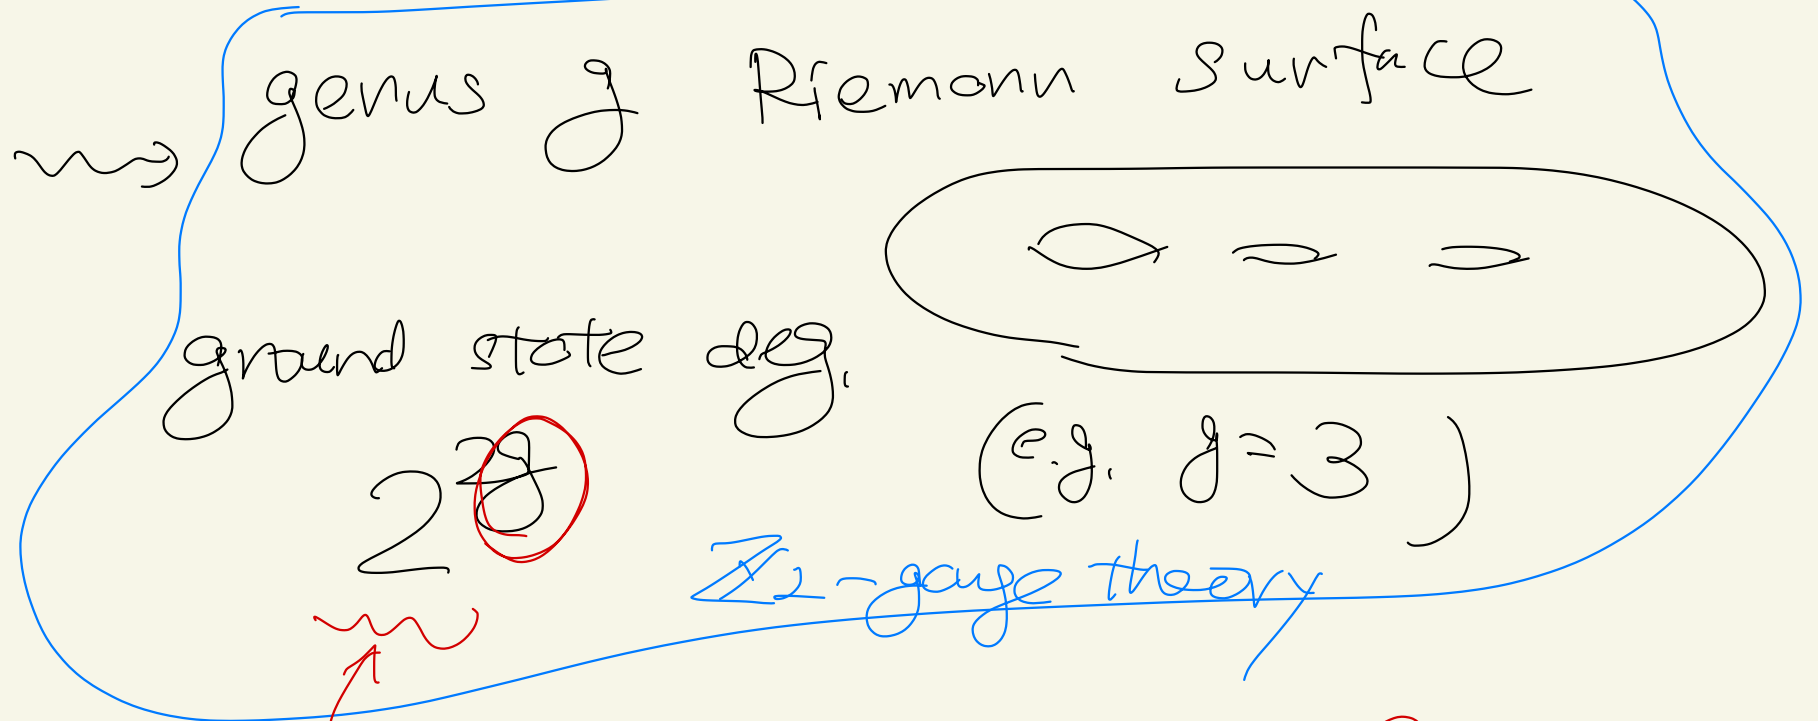 genus g Riemann surface
ground state deg.
2^{2g}
(e.g. g=3)
ℤ₂-gauge theory